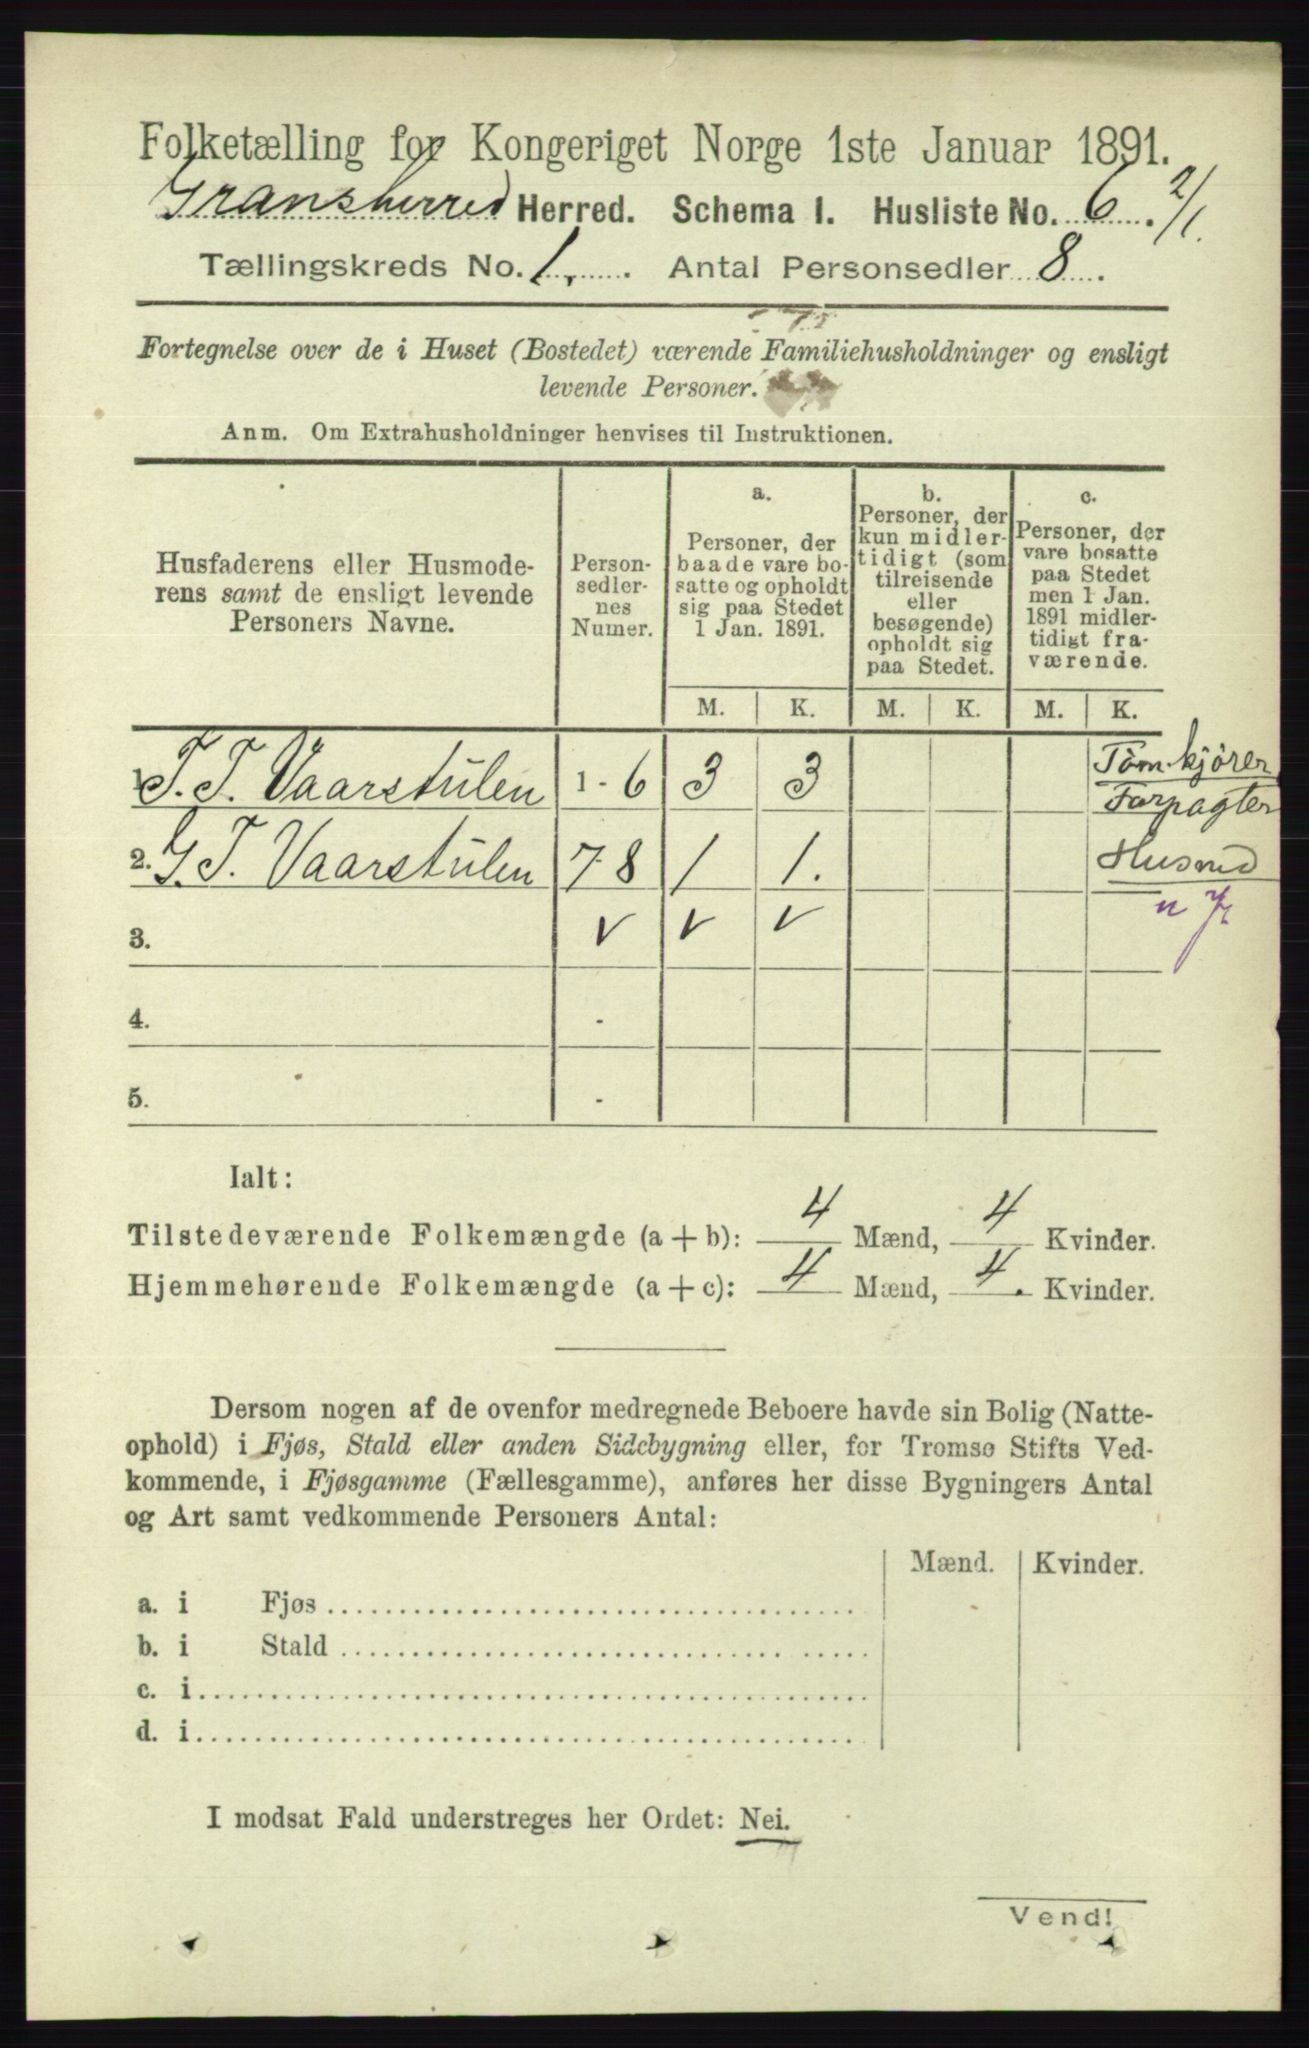 Folketælling for Kongeriget Norge 1ste Januar 1891.
Gransherred Herred. Schema I. Husliste No. 6. 2/1.
Tællingskreds No. 1. Antal Personsedler 8.
Fortegnelse over de i Huset (Bostedet) værende Familiehusholdninger og ensligt
levende Personer.
Anm. Om Extrahusholdninger henvises til Instruktionen.
Husfaderens eller Husmode-
rens samt de ensligt levende
Personers Navne.
Person-
sedler-
nes
Numer.
a.
Personer, der
baade vare bo-
satte og opholdt
sig paa Stedet
1 Jan. 1891.
b.
Personer, der
kun midler-
tidigt (som
tilreisende
eller
besøgende)
opholdt sig
paa Stedet.
c.
Personer, der
vare bosatte
paa Stedet
men 1 Jan.
1891 midler-
tidigt fra-
værende.
M. K. M. K. M. K.
1. T. T. Vaarstulen 1 - 6 3 3 Tøm.kjører
Forpagter
2. G. T. Vaarstulen 7-8 1 1. Husmd
3. v v v
4. -
5. -
Ialt:
Tilstedeværende Folkemængde (a + b): 4 Mænd, 4 Kvinder.
Hjemmehørende Folkemængde (a + c): 4 Mænd, 4. Kvinder.
Dersom nogen af de ovenfor medregnede Beboere havde sin Bolig (Natte-
ophold) i Fjøs, Stald eller anden Sidebygning eller, for Tromsø Stifts Ved-
kommende, i Fjøsgamme (Fællesgamme), anføres her disse Bygningers Antal
og Art samt vedkommende Personers Antal:
Mænd. Kvinder.
a. i Fjøs
b. i Stald
c. i
d. i
I modsat Fald understreges her Ordet: Nei.
Vend!